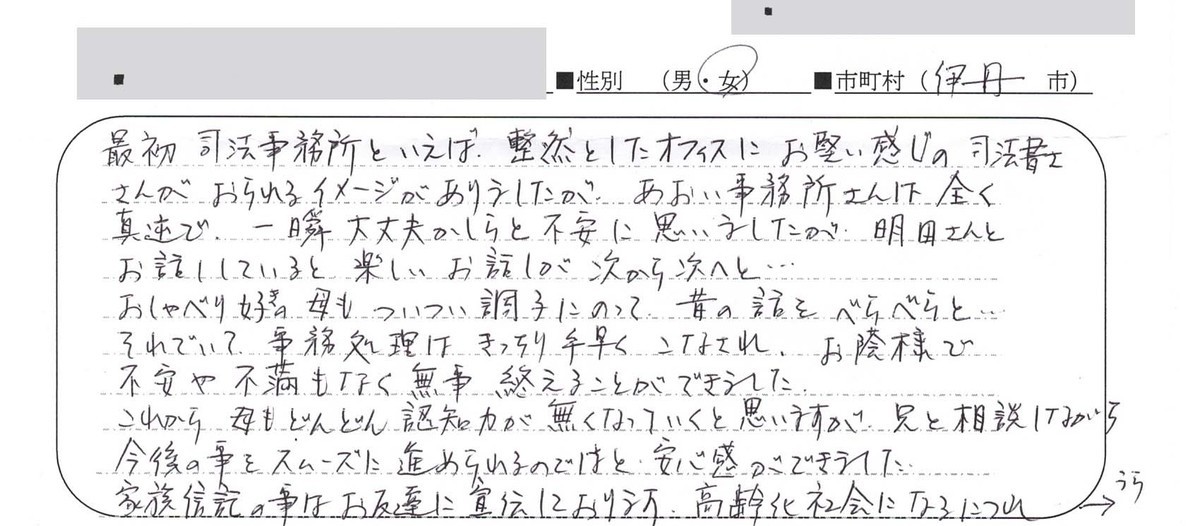 ■性別 （男・女） ■市町村（伊丹 市）
最初 司法事務所といえば、整然としたオフィスに お堅い感じの 司法書士
さんが おられるイメージがありましたが、あおい事務所さんは 全く
真逆で、一瞬 大丈夫かしらと 不安に 思いましたが、明田さんと
お話ししていると 楽しい お話しが 次から次へと…
おしゃべり好きの 母も ついつい 調子にのって、昔の 話を べらべらと…
それでいて、事務処理は きっちり 手早く こなされ、お蔭様で
不安や 不満もなく 無事 終えることができました。
これから 母もどんどん 認知力が 無くなっていくと 思いますが、兄と 相談しながら
今後の事を スムーズに 進められるのではと 安心感ができました。
家族信託の事は お友達に 宣伝しております。高齢化社会になるにつれ
→うら